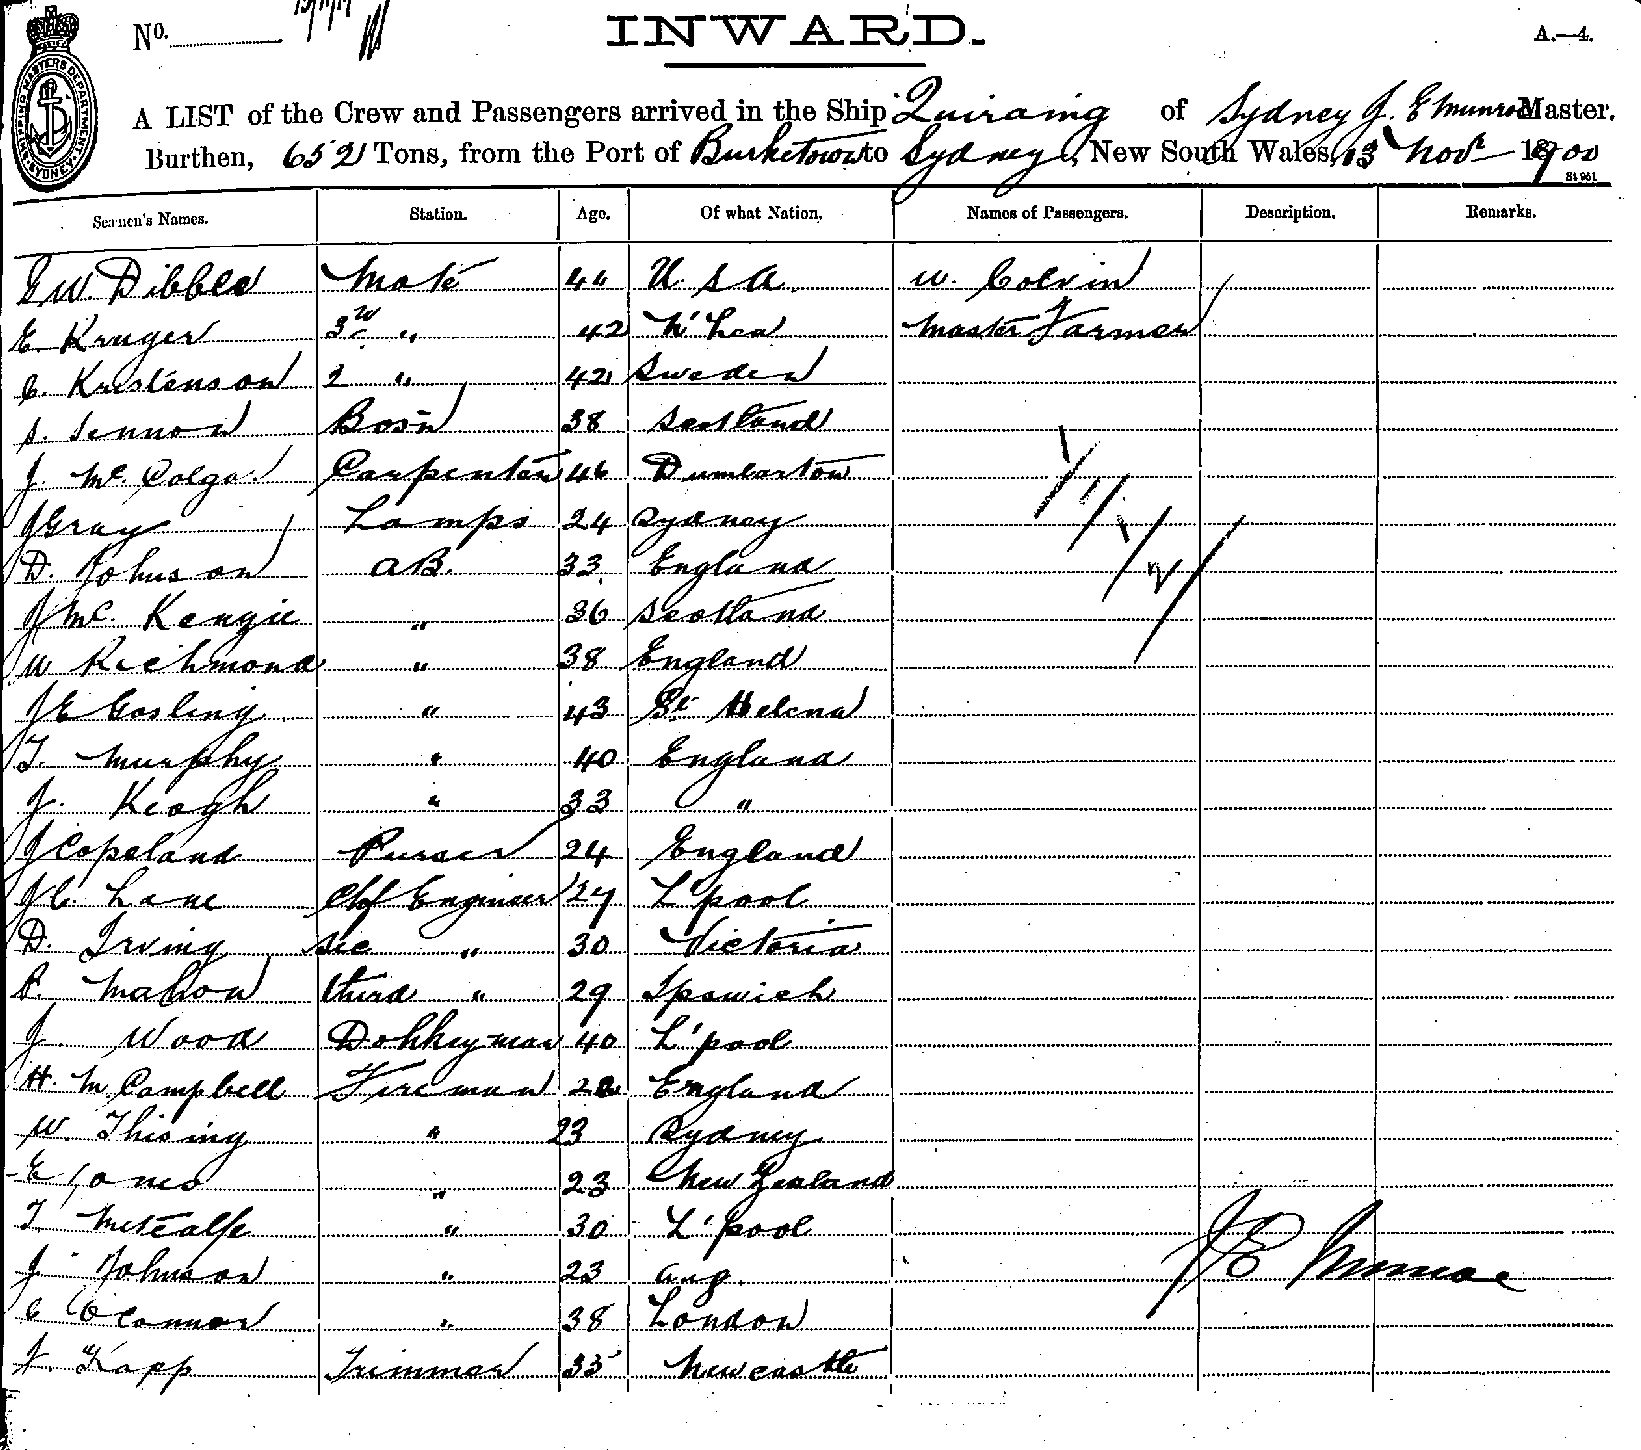 No.
INWARD.
A.—4.
SHIPPING MASTERS DEPARTMENT SYDNEY
A LIST of the Crew and Passengers arrived in the Ship Quiraing of Sydney J. E Munroe Master.
Burthen, 652 Tons, from the Port of Burketown to Sydney, New South Wales, 13 Novr 1900
Seamen's Names. Station. Age. Of what Nation. Names of Passengers. Description. Remarks.
E W. Dibble Mate 44 U. S A. W. Colvin
E. Kruger 3rd " 42 Master Farmer
C. Kristenson 2 " 42 Sweden
S. Lennon Bosn 38 Scotland
J. Mc Colga Carpenter 46 Dumbarton
J Gray Lamps 24 Sydney
D. Johnson AB. 33 England
J Mc Kenzie " 36 Scotland
W Richmond " 38 England
J E Gosling " 43 St Helena
T. Murphy " 40 England
J. Keogh " 33 "
J Copeland Purser 24 England
J C. Lane Chf Engineer 27 L'pool
D. Irving Sec " 30 Victoria
Mahon third " 29 Ipswich
J. Wood Donkeyman 40 L'pool
H. M Campbell Fireman England
W. Thising " 23 Sydney
E Jones " 23 New Zealand
T Metcalfe " 30 L'pool
J Johnson " 23
J E Munroe
C O'Connor " 38 London
Kapp Trimmer 35 Newcastle